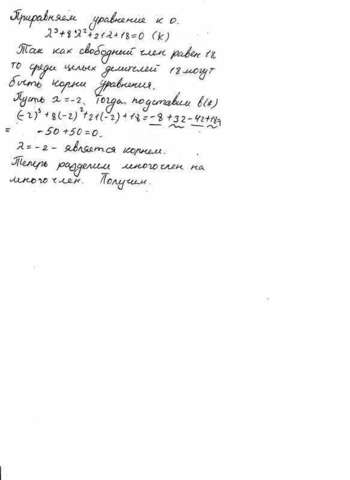 Приравняем уравнение к 0.
2³+82²+212+18=0 (К)
Так как свободный член равен 18
то среди целых делителей 18 могут
быть корни уравнения.
Пусть 2=-2. Тогда подставим в(к)
(-2)³+8(-2)²+21(-2)+18=-8+32-42+18=
= -50+50=0.
2=-2- является корнем.
Теперь разделим многочлен на
многочлен. Получим.